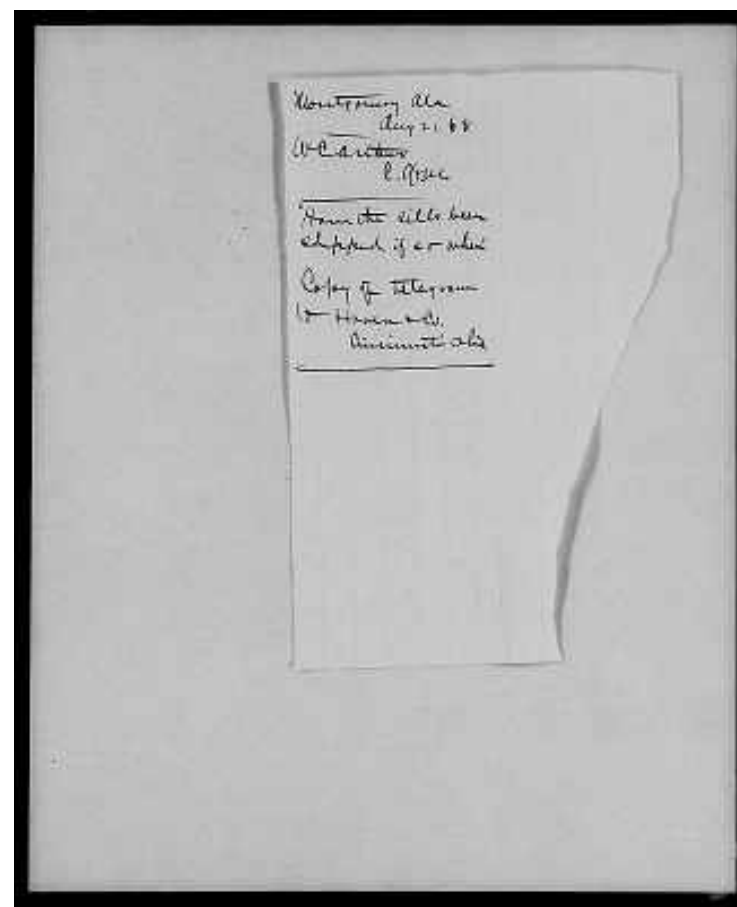 Montgomery Ala
Aug 21 68
W C Arthur
Have the sills been
shipped if so when
Copy of telegram
to Haven & Co.
Cincinnati Ohio